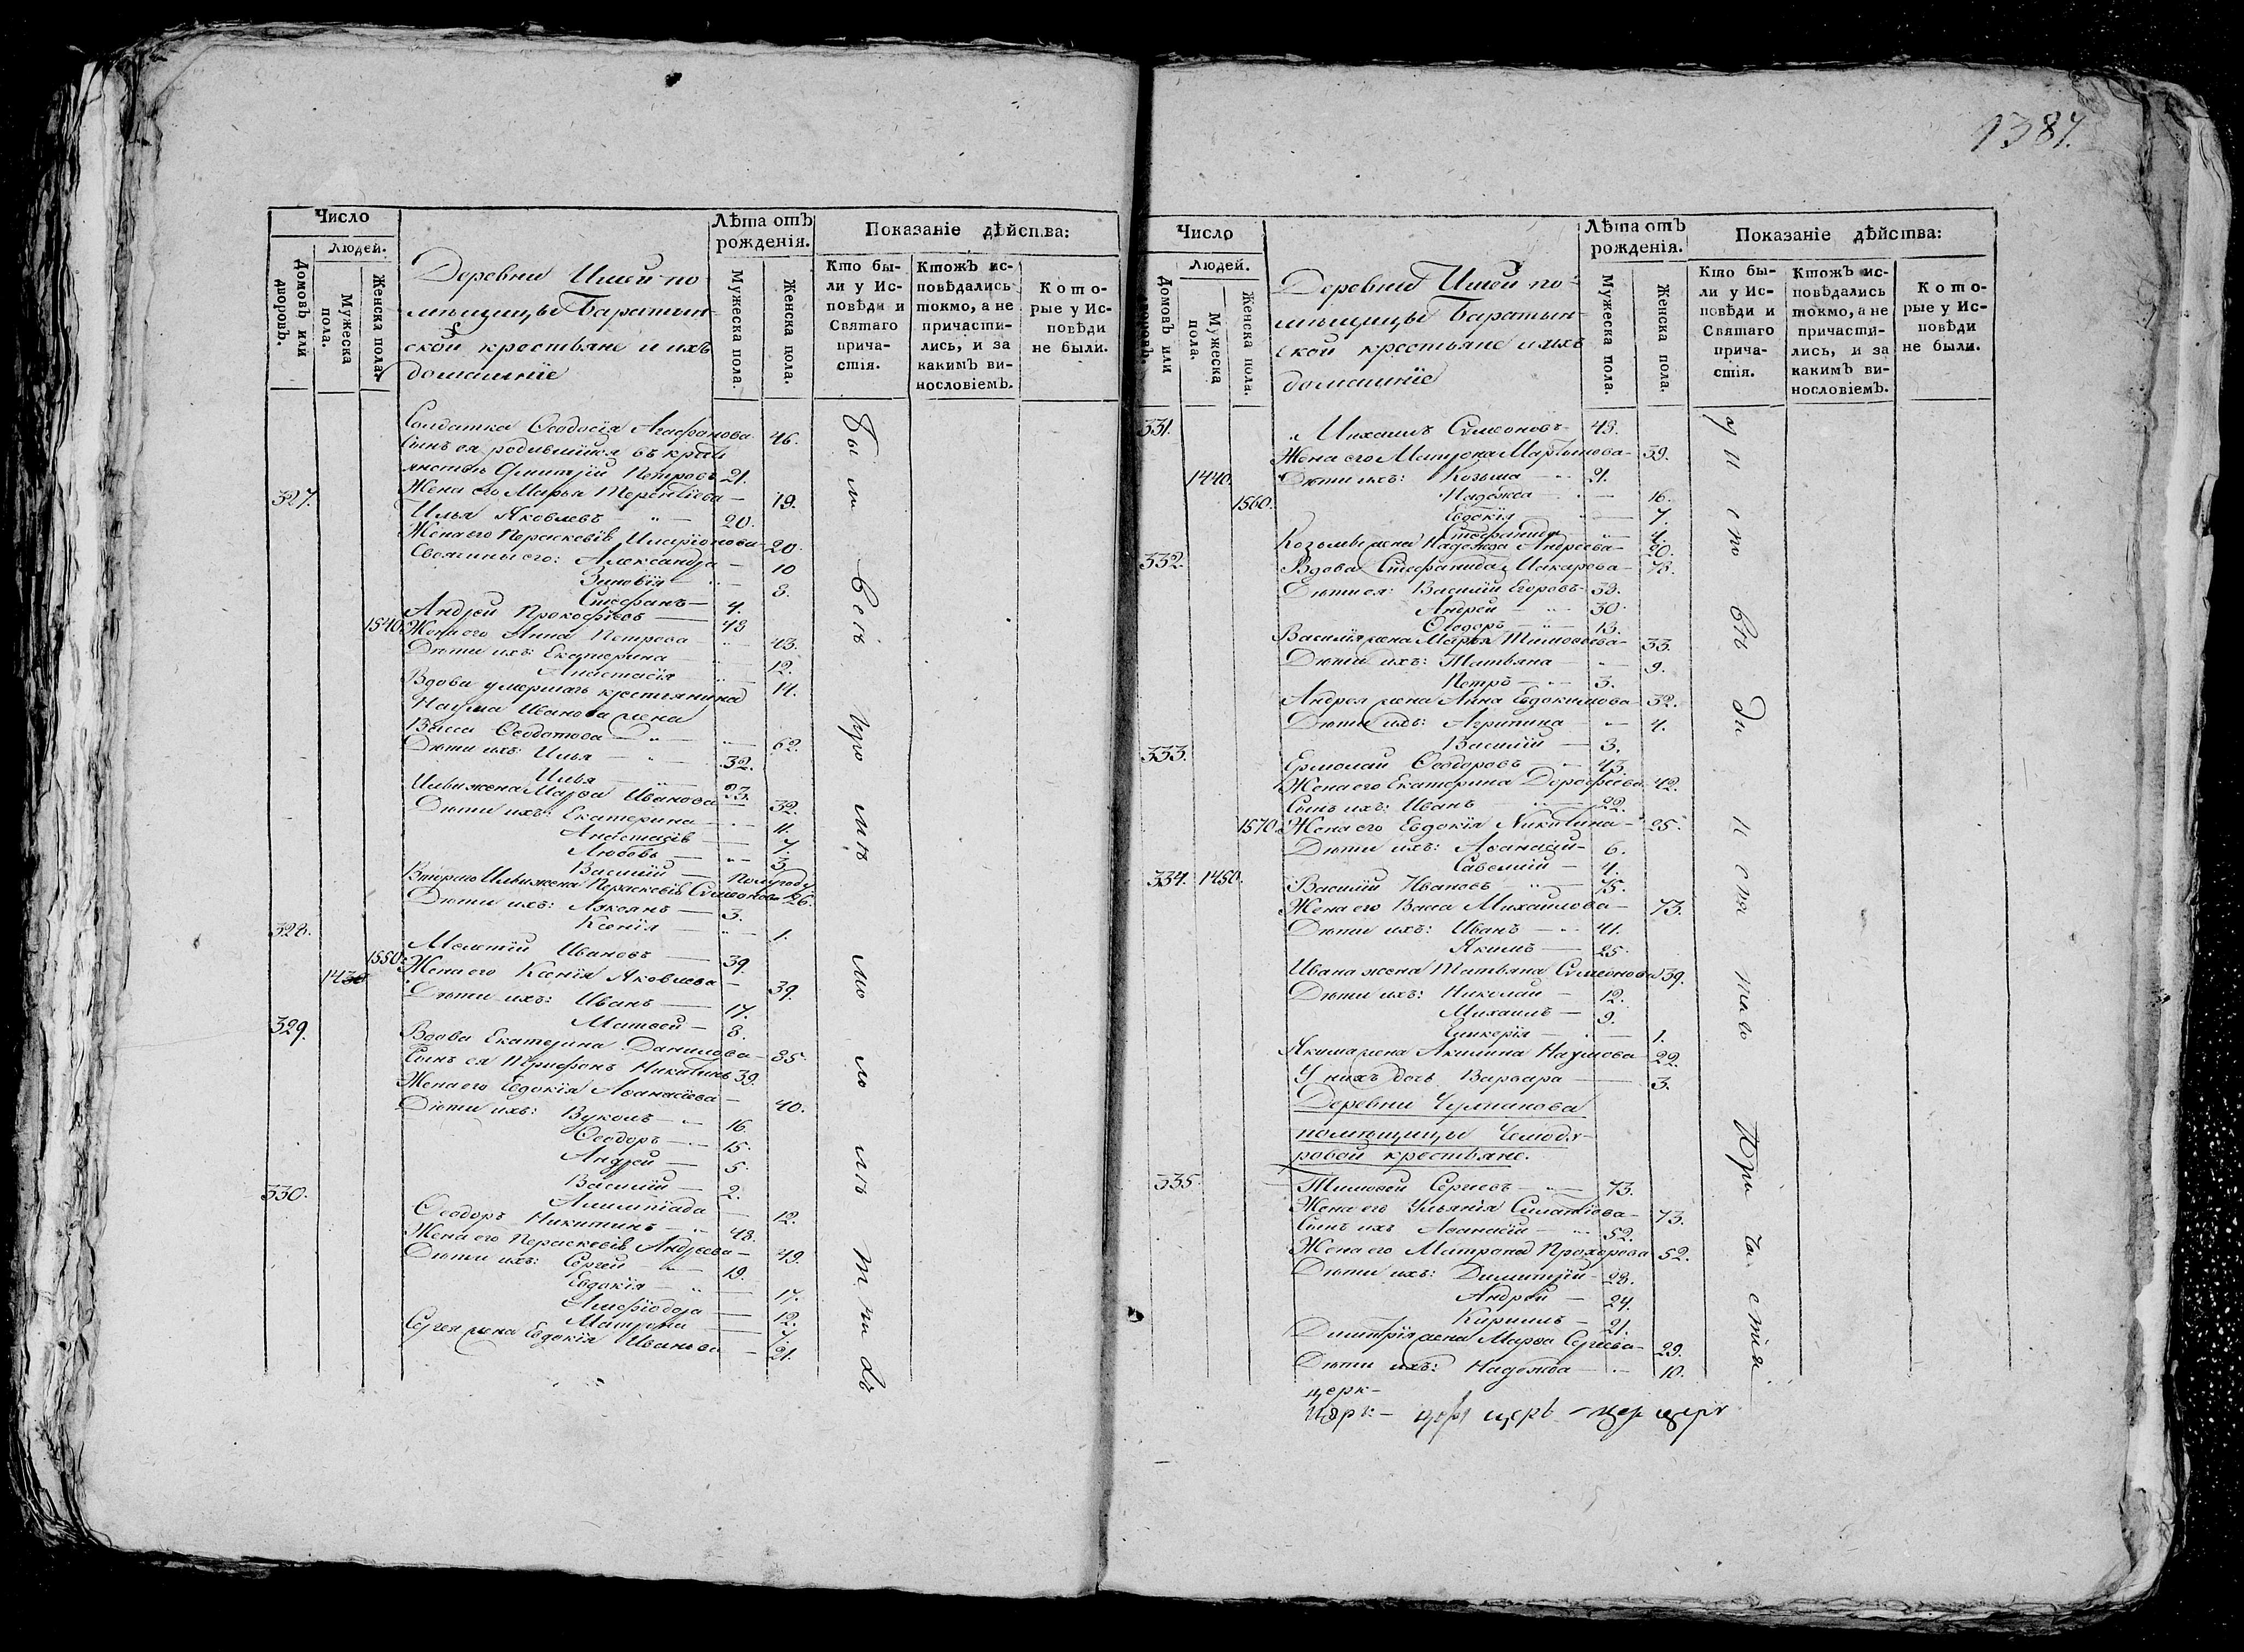 1387.
Число
Людей.
Домовъ или дворовъ.
Мужеска пола.
Женска пола.
Деревни
помѣщицы Баратын-
ской крестьяне и ихъ
домашніе
Лѣта отъ рожденія.
Мужеска пола.
Женска пола.
Показаніе дѣйства:
Кто бы-
ли у Ис-
повѣди и
Святаго
прича-
стія.
Ктожъ ис-
повѣдались
токмо, а не
причасти-
лись, и за
какимъ ви-
нословіемъ.
Кото-
рые у Ис-
повѣди
не были.
Солдатка Ѳеодосія Агафонова 46.
Сынъ ея родившійся въ крестьянствѣ Димитрій Петровъ 21.
Жена его Марья Терентіева — 19.
327. Илья Яковлевъ — 20.
Жена его Параскевія Иларіонова — 20.
его: Александра — 10
Зиновія — 8.
Стефанъ — 4.
Андрей Прокофіевъ — 43
1540. Жена его Анна Петрова — 43.
Дѣти ихъ: Екатерина — 12.
Анастасія — 14.
Вдова умершаго крестьянина
Наума Иванова жена
Васса Ѳеодотова — 62.
Дѣти ихъ: Илья — 32.
Илья — 23.
Ильи жена Марѳа Иванова — 32.
Дѣти ихъ: Екатерина — 11.
Анастасія — 7.
Любовь — 3
Василій — полугоду
Втораго Ильи жена Параскевія Симеонова 26.
Дѣти ихъ: — 3.
Ксенія — 1.
328. Мелетій Ивановъ — 39.
1550. Жена его Ксенія Яковлева — 39.
1430 Дѣти ихъ: Иванъ — 17.
Матвей — 8.
329. Вдова Екатерина Данилова — 85.
Сынъ ея Трифонъ Никитинъ 39.
Жена его Евдокія Аѳанасіева — 40.
Дѣти ихъ: Вуколъ — 16
Ѳеодоръ — 15.
Андрей — 5.
Василій — 2.
Алимпіада — 12.
330. Ѳеодоръ Никитинъ — 48.
Жена его Параскевія Андреева — 49.
Дѣти ихъ: Сергей — 19.
Евдокія — 17.
— 12.
Матрона — 7.
Сергея жена Евдокія Иванова — 21.
Бы ли
Число
Людей.
Домовъ или дворовъ.
Мужеска пола.
Женска пола.
Деревни
помѣщицы Баратын-
ской крестьяне и ихъ
домашніе
Лѣта отъ рожденія.
Мужеска пола.
Женска пола.
Показаніе дѣйства:
Кто бы-
ли у Ис-
повѣди и
Святаго
прича-
стія.
Ктожъ ис-
повѣдались
токмо, а не
причасти-
лись, и за
какимъ ви-
нословіемъ.
Кото-
рые у Ис-
повѣди
не были.
331. Михаилъ Симеоновъ — 43.
Жена его Матрона Мартынова — 39.
1440 Дѣти ихъ: Козьма — 21.
1560. Надежда — 16.
Евдокія — 7.
Стефанида — 4.
Козьмы жена Надежда Андреева — 20.
332. Вдова Стефанида Макарова — 73.
Дѣти ея: Василій Егоровъ — 38.
Андрей — 30.
Ѳеодоръ — 13.
Василія жена Марья Тимоѳеева — 33.
Дѣти ихъ: Татьяна — 9.
Петръ — 3.
Андрея жена Анна Евдокимова — 32.
Дѣти ихъ: Агрипина — 4.
Василій — 3.
333. Ермолай Ѳеодоровъ — 43.
Жена его Екатерина Дорофеева 42.
Сынъ ихъ: Иванъ — 22.
1570. Жена его Евдокія Никитина — 25.
Дѣти ихъ: Аѳанасій — 6.
Савелій — 4.
334. 1450. Василій Ивановъ — 75.
Жена его Васса Михайлова — 73.
Дѣти ихъ: Иванъ — 41.
Якимъ — 25.
Ивана жена Татьяна Симеонова 39.
Дѣти ихъ: Николай — 12.
Михаилъ — 9.
Гликерія — 1.
Якима жена Акилина Наумова 22.
У нихъ дочь Варвара — 3.
Деревни Чулпанова
помѣщицы
крестьяне.
335. Тимоѳей Сергеевъ — 73.
Жена его Ульянія — 73.
Сынъ ихъ Аѳанасій — 52.
Жена его Матрона Прохорова 52.
Дѣти ихъ: Димитрій — 28.
Андрей — 24.
Кирилъ — 21.
Димитрія жена Марѳа Сергеева — 29.
Дѣти ихъ: Надежда — 10.
у И спо вѣ ди и свя таго При ча стія.
церк-
церк-